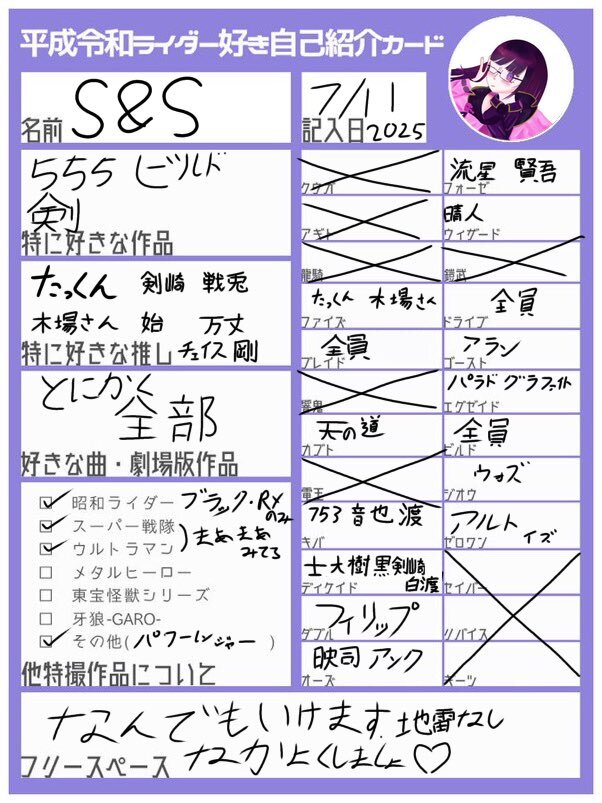 平成令和ライダー好き自己紹介カード
S&S
名前
7/11
記入日2025
555 ビルド
剣
特に好きな作品
たっくん 剣崎 戦兎
木場さん 始 万丈
特に好きな推し チェイス 剛
とにかく
全部
好きな曲・劇場版作品
昭和ライダー ブラック・RXのみ
スーパー戦隊
ウルトラマン
まぁまぁみてる
メタルヒーロー
東宝怪獣シリーズ
牙狼-GARO-
その他(パワーレンジャー)
他特撮作品について
クウガ
アギト
龍騎
たっくん 木場さん
ファイズ
全員
ブレイド
響鬼
天の道
カブト
電王
753 音也 渡
キバ
士 大樹 黒剣崎
白渡
ディケイド
フィリップ
ダブル
映司 アンク
オーズ
流星 賢吾
フォーゼ
晴人
ウィザード
鎧武
全員
ドライブ
アラン
ゴースト
パラド グラファイト
エグゼイド
全員
ビルド
ウォズ
ジオウ
アルト イズ
ゼロワン
セイバー
リバイス
ギーツ
なんでもいけます 地雷なし
フリースペース なかよくしましょ♡